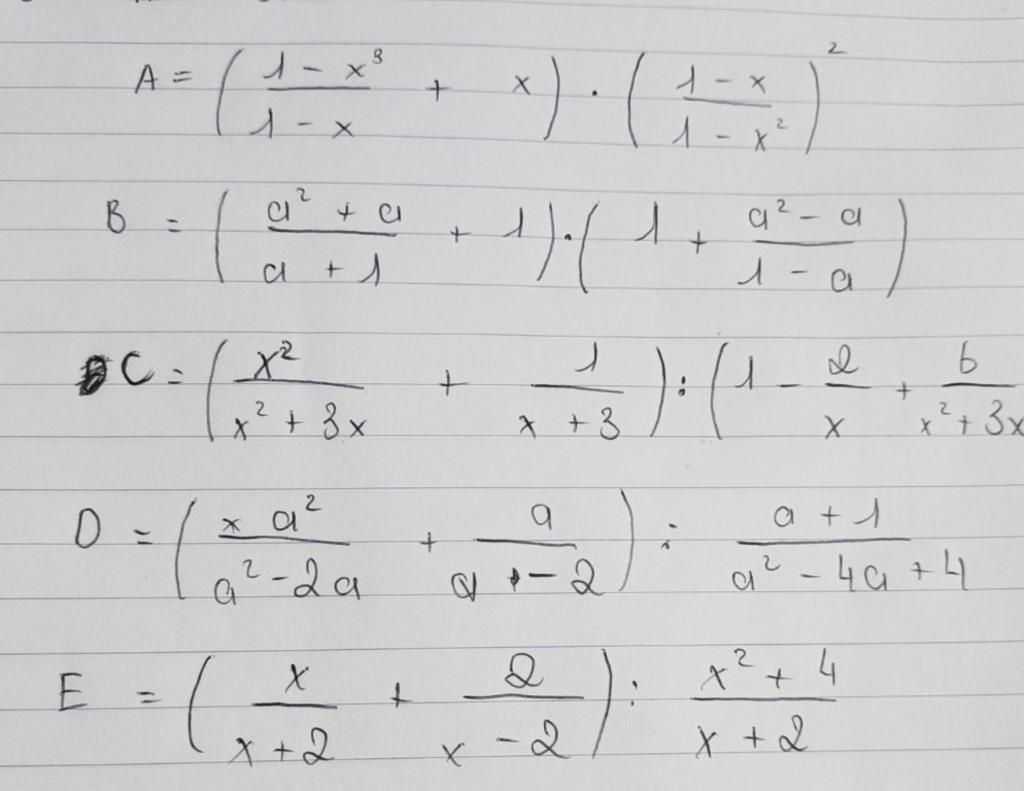 A = ( (1 - x³)/(1 - x) + x ) · ( (1 - x)/(1 - x²) )²
B = ( (a² + a)/(a + 1) + 1 ) · ( 1 + (a² - a)/(1 - a) )
C = ( x²/(x² + 3x) + 1/(x + 3) ) : ( 1 - 2/x + 6/(x² + 3x)
D = ( (x a²)/(a² - 2a) + a/(a - 2) ) : (a + 1)/(a² - 4a + 4)
E = ( x/(x + 2) + 2/(x - 2) ) : (x² + 4)/(x + 2)